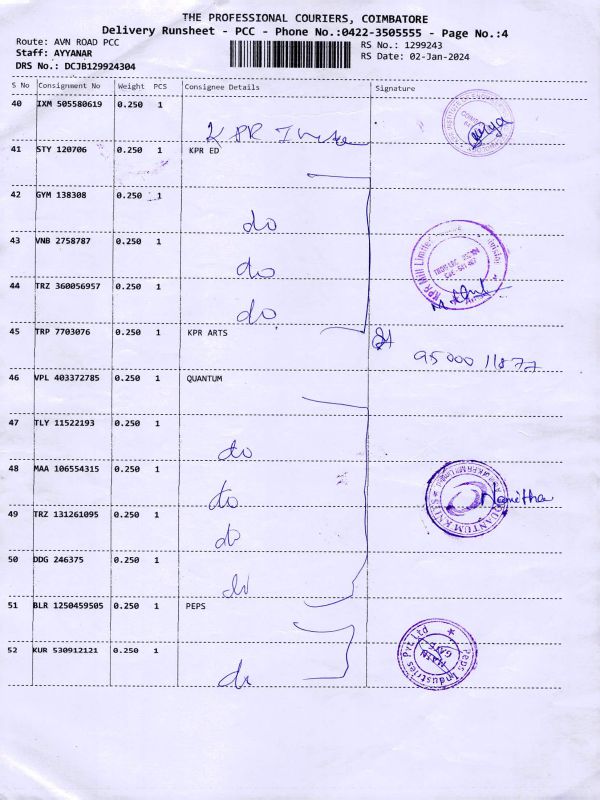 THE PROFESSIONAL COURIERS, COIMBATORE
Delivery Runsheet - PCC - Phone No.:0422-3505555 - Page No.:4
Route: AVN ROAD PCC
RS No.: 1299243
Staff: AYYANAR
RS Date: 02-Jan-2024
DRS No.: DCJB129924304
S No Consignment No Weight PCS Consignee Details Signature
40 IXM 505580619 0.250 1
KPR
41 STY 120706 0.250 1 KPR ED
42 GYM 138308 0.250 1
do
43 VNB 2758787 0.250 1
do
KPR Mill Limited
44 TRZ 360056957 0.250 1
do
45 TRP 7703076 0.250 1 KPR ARTS
95000 11877
46 VPL 403372785 0.250 1 QUANTUM
47 TLY 11522193 0.250 1
do
48 MAA 106554315 0.250 1
do
QUANTUM KNITS
Namitha
49 TRZ 131261095 0.250 1
do
50 DDG 246375 0.250 1
do
51 BLR 1250459505 0.250 1 PEPS
52 KUR 530912121 0.250 1
do
Peps Industries Pvt Ltd
MAIN
GATE